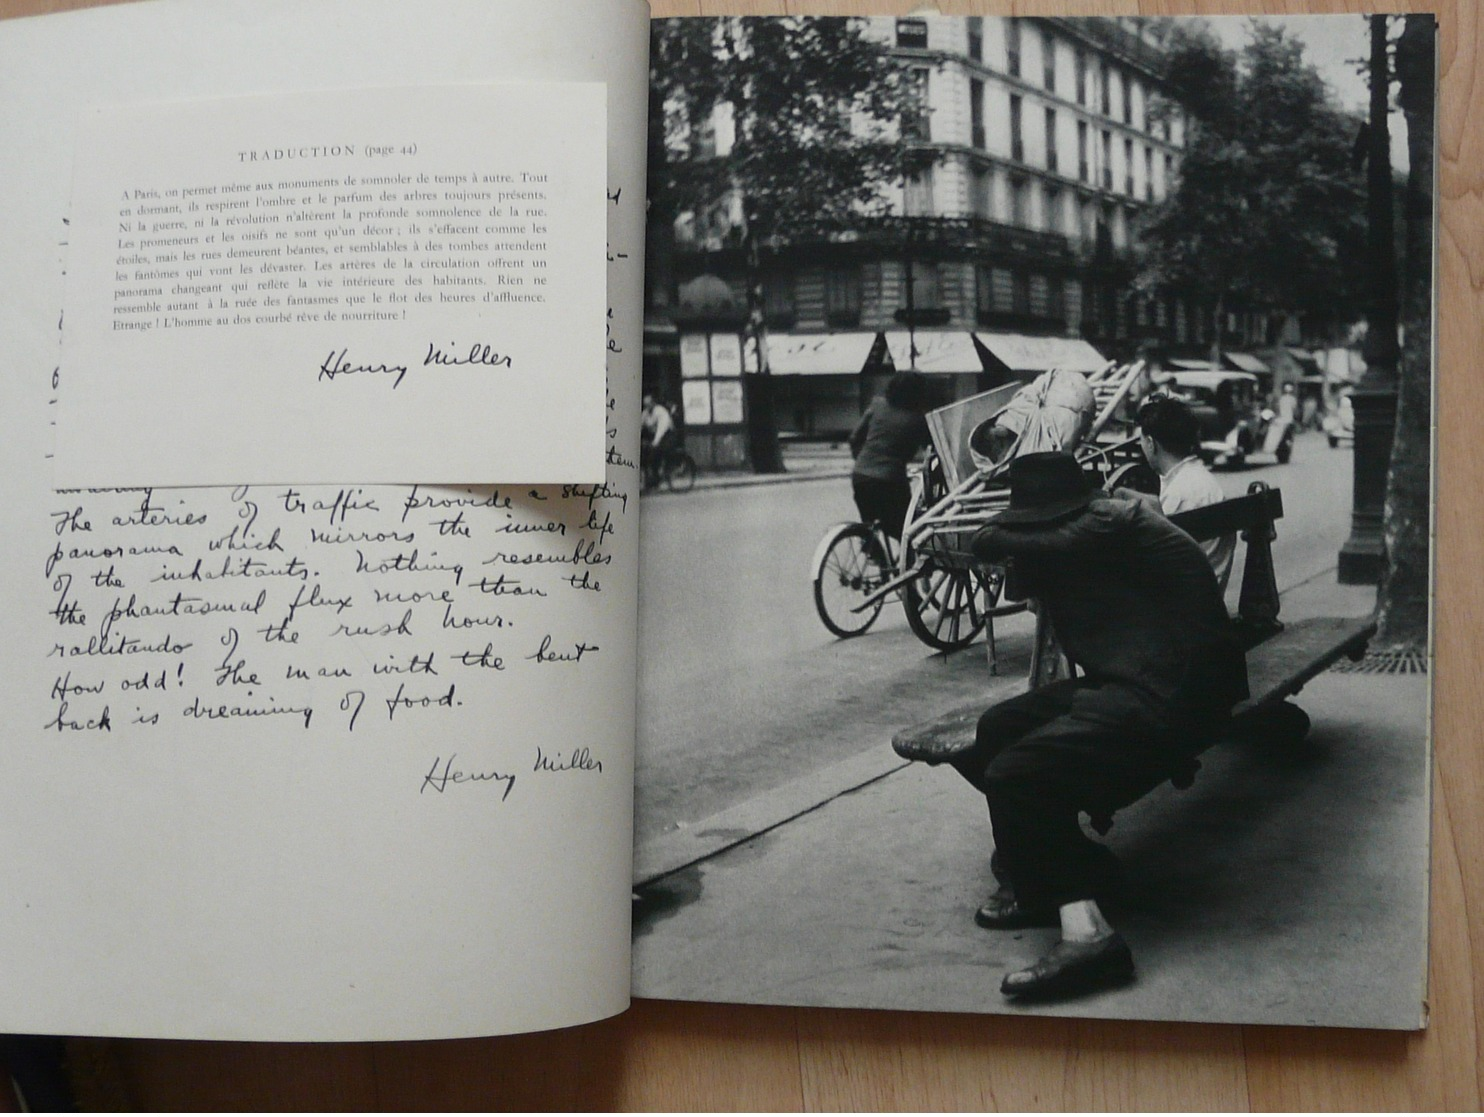 TRADUCTION (page 44)
A Paris, on permet même aux monuments de somnoler de temps à autre. Tout
en dormant, ils respirent l'ombre et le parfum des arbres toujours présents.
Ni la guerre, ni la révolution n'altèrent la profonde somnolence de la rue.
Les promeneurs et les oisifs ne sont qu'un décor ; ils s'effacent comme les
étoiles, mais les rues demeurent béantes, et semblables à des tombes attendent
les fantômes qui vont les dévaster. Les artères de la circulation offrent un
panorama changeant qui reflète la vie intérieure des habitants. Rien ne
ressemble autant à la ruée des fantasmes que le flot des heures d'affluence.
Etrange ! L'homme au dos courbé rêve de nourriture !
Henry Miller
The arteries of traffic provide a shifting
panorama which mirrors the inner life
of the inhabitants. Nothing resembles
the phantasmal flux more than the
rallitando of the rush hour.
How odd! The man with the bent
back is dreaming of food.
Henry Miller